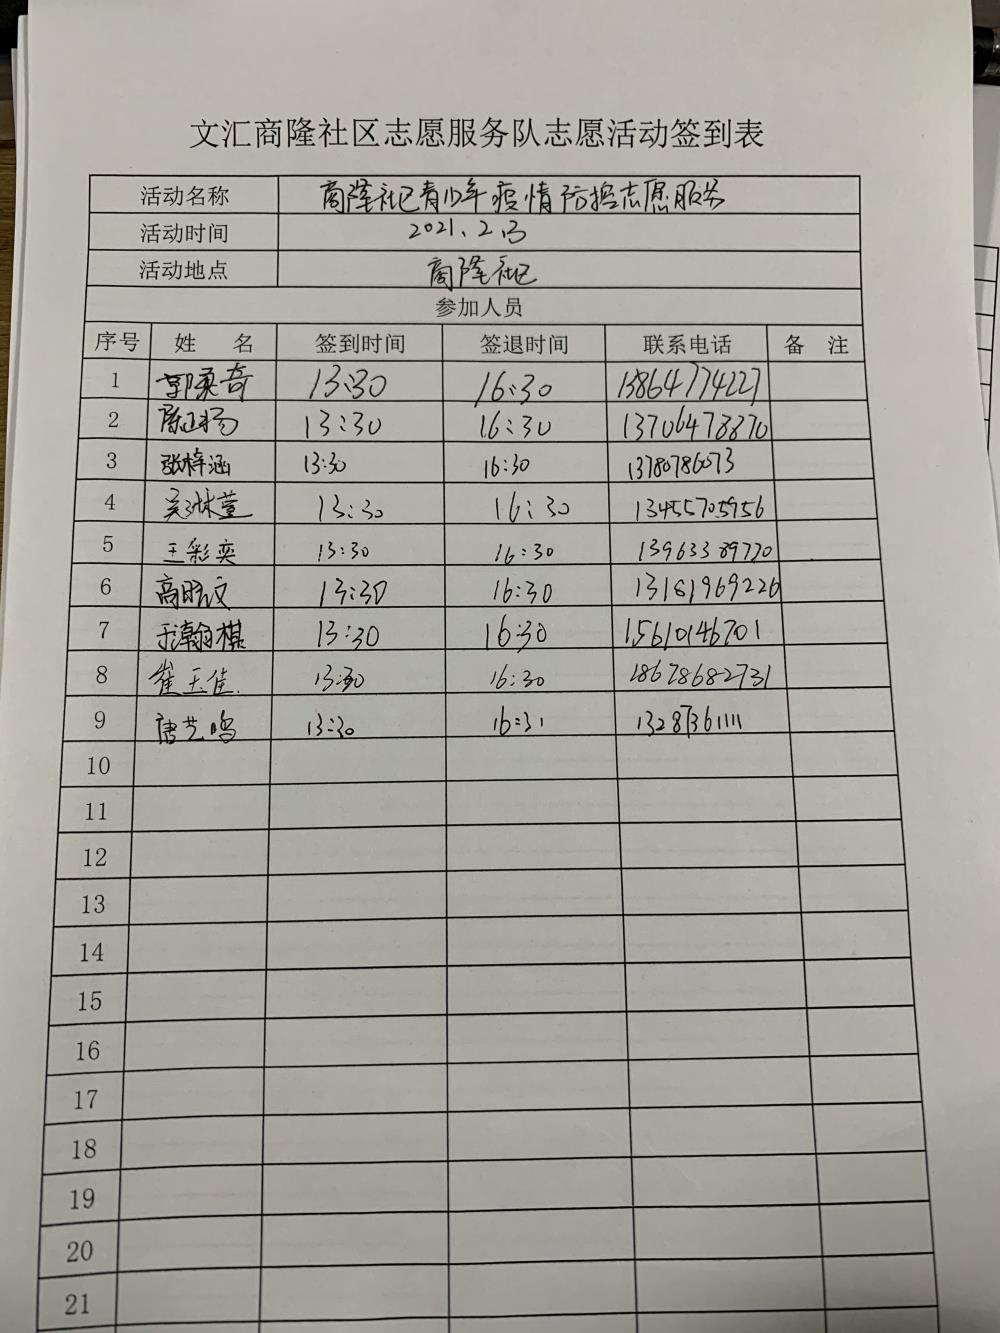 文汇商隆社区志愿服务队志愿活动签到表
活动名称 商隆社区青少年疫情防控志愿服务
活动时间 2021.2.3
活动地点 商隆社区
参加人员
序号 姓 名 签到时间 签退时间 联系电话 备 注
1 郭奕奇 13:30 16:30 13864774227
2 陈正扬 13:30 16:30 13706478870
3 张梓涵 13:30 16:30 13780786073
4 吴琳萱 13:30 16:30 13455705956
5 王彩奕 13:30 16:30 13963389770
6 高晗文 13:30 16:30 13181969226
7 于瀚棋 13:30 16:30 15610146701
8 崔玉佳 13:30 16:30 18678682731
9 唐艺鸣 13:30 16:31 13287361111
10
11
12
13
14
15
16
17
18
19
20
21